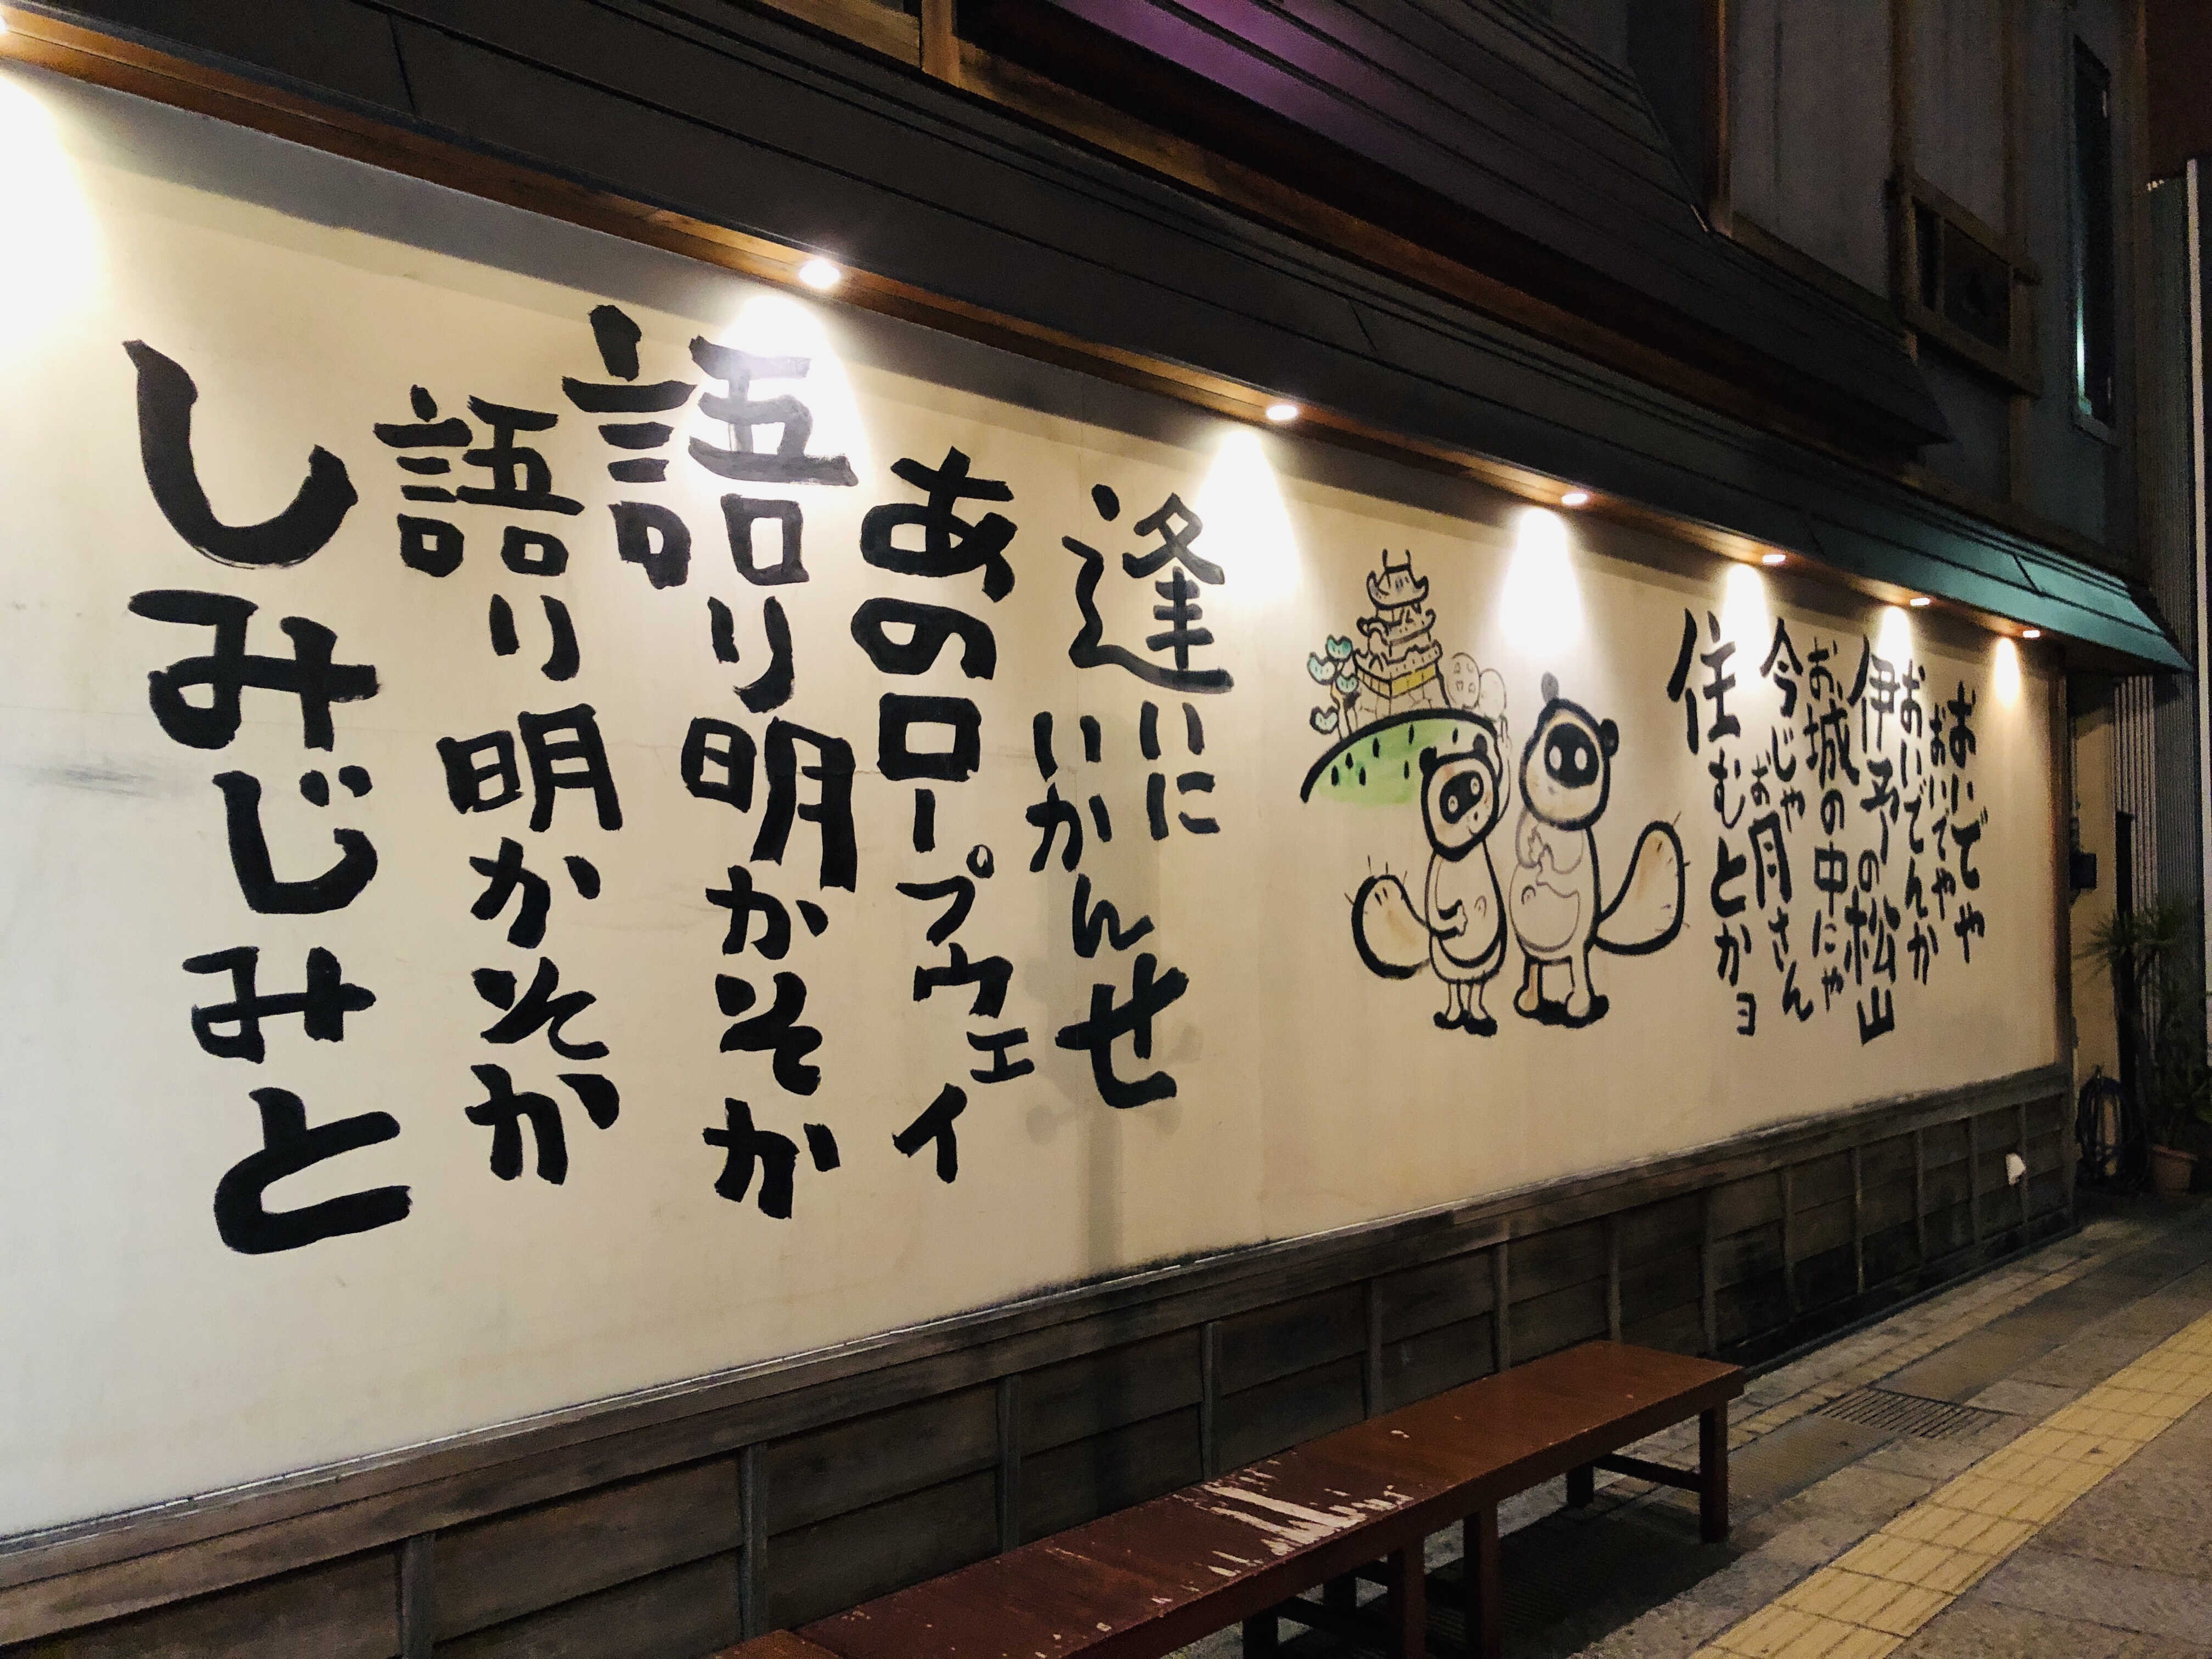 おいでや
おいでや
おいでんか
伊予の松山
お城の中にゃ
今じゃ
お月さん
住むとかヨ
逢いに
いかんせ
あのロープウェイ
語り明かそか
語り明かそか
しみじみと